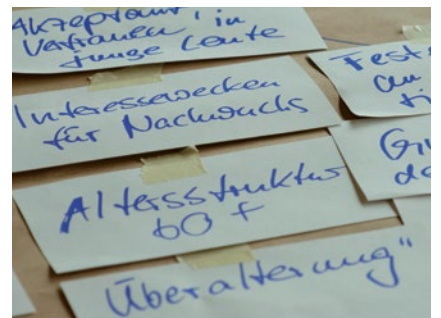 Akzeptanz,
Vertrauen in
junge Leute
Interessewecken
für Nachwuchs
Altersstruktur
60 +
Überalterung"
Fest
an
Gru